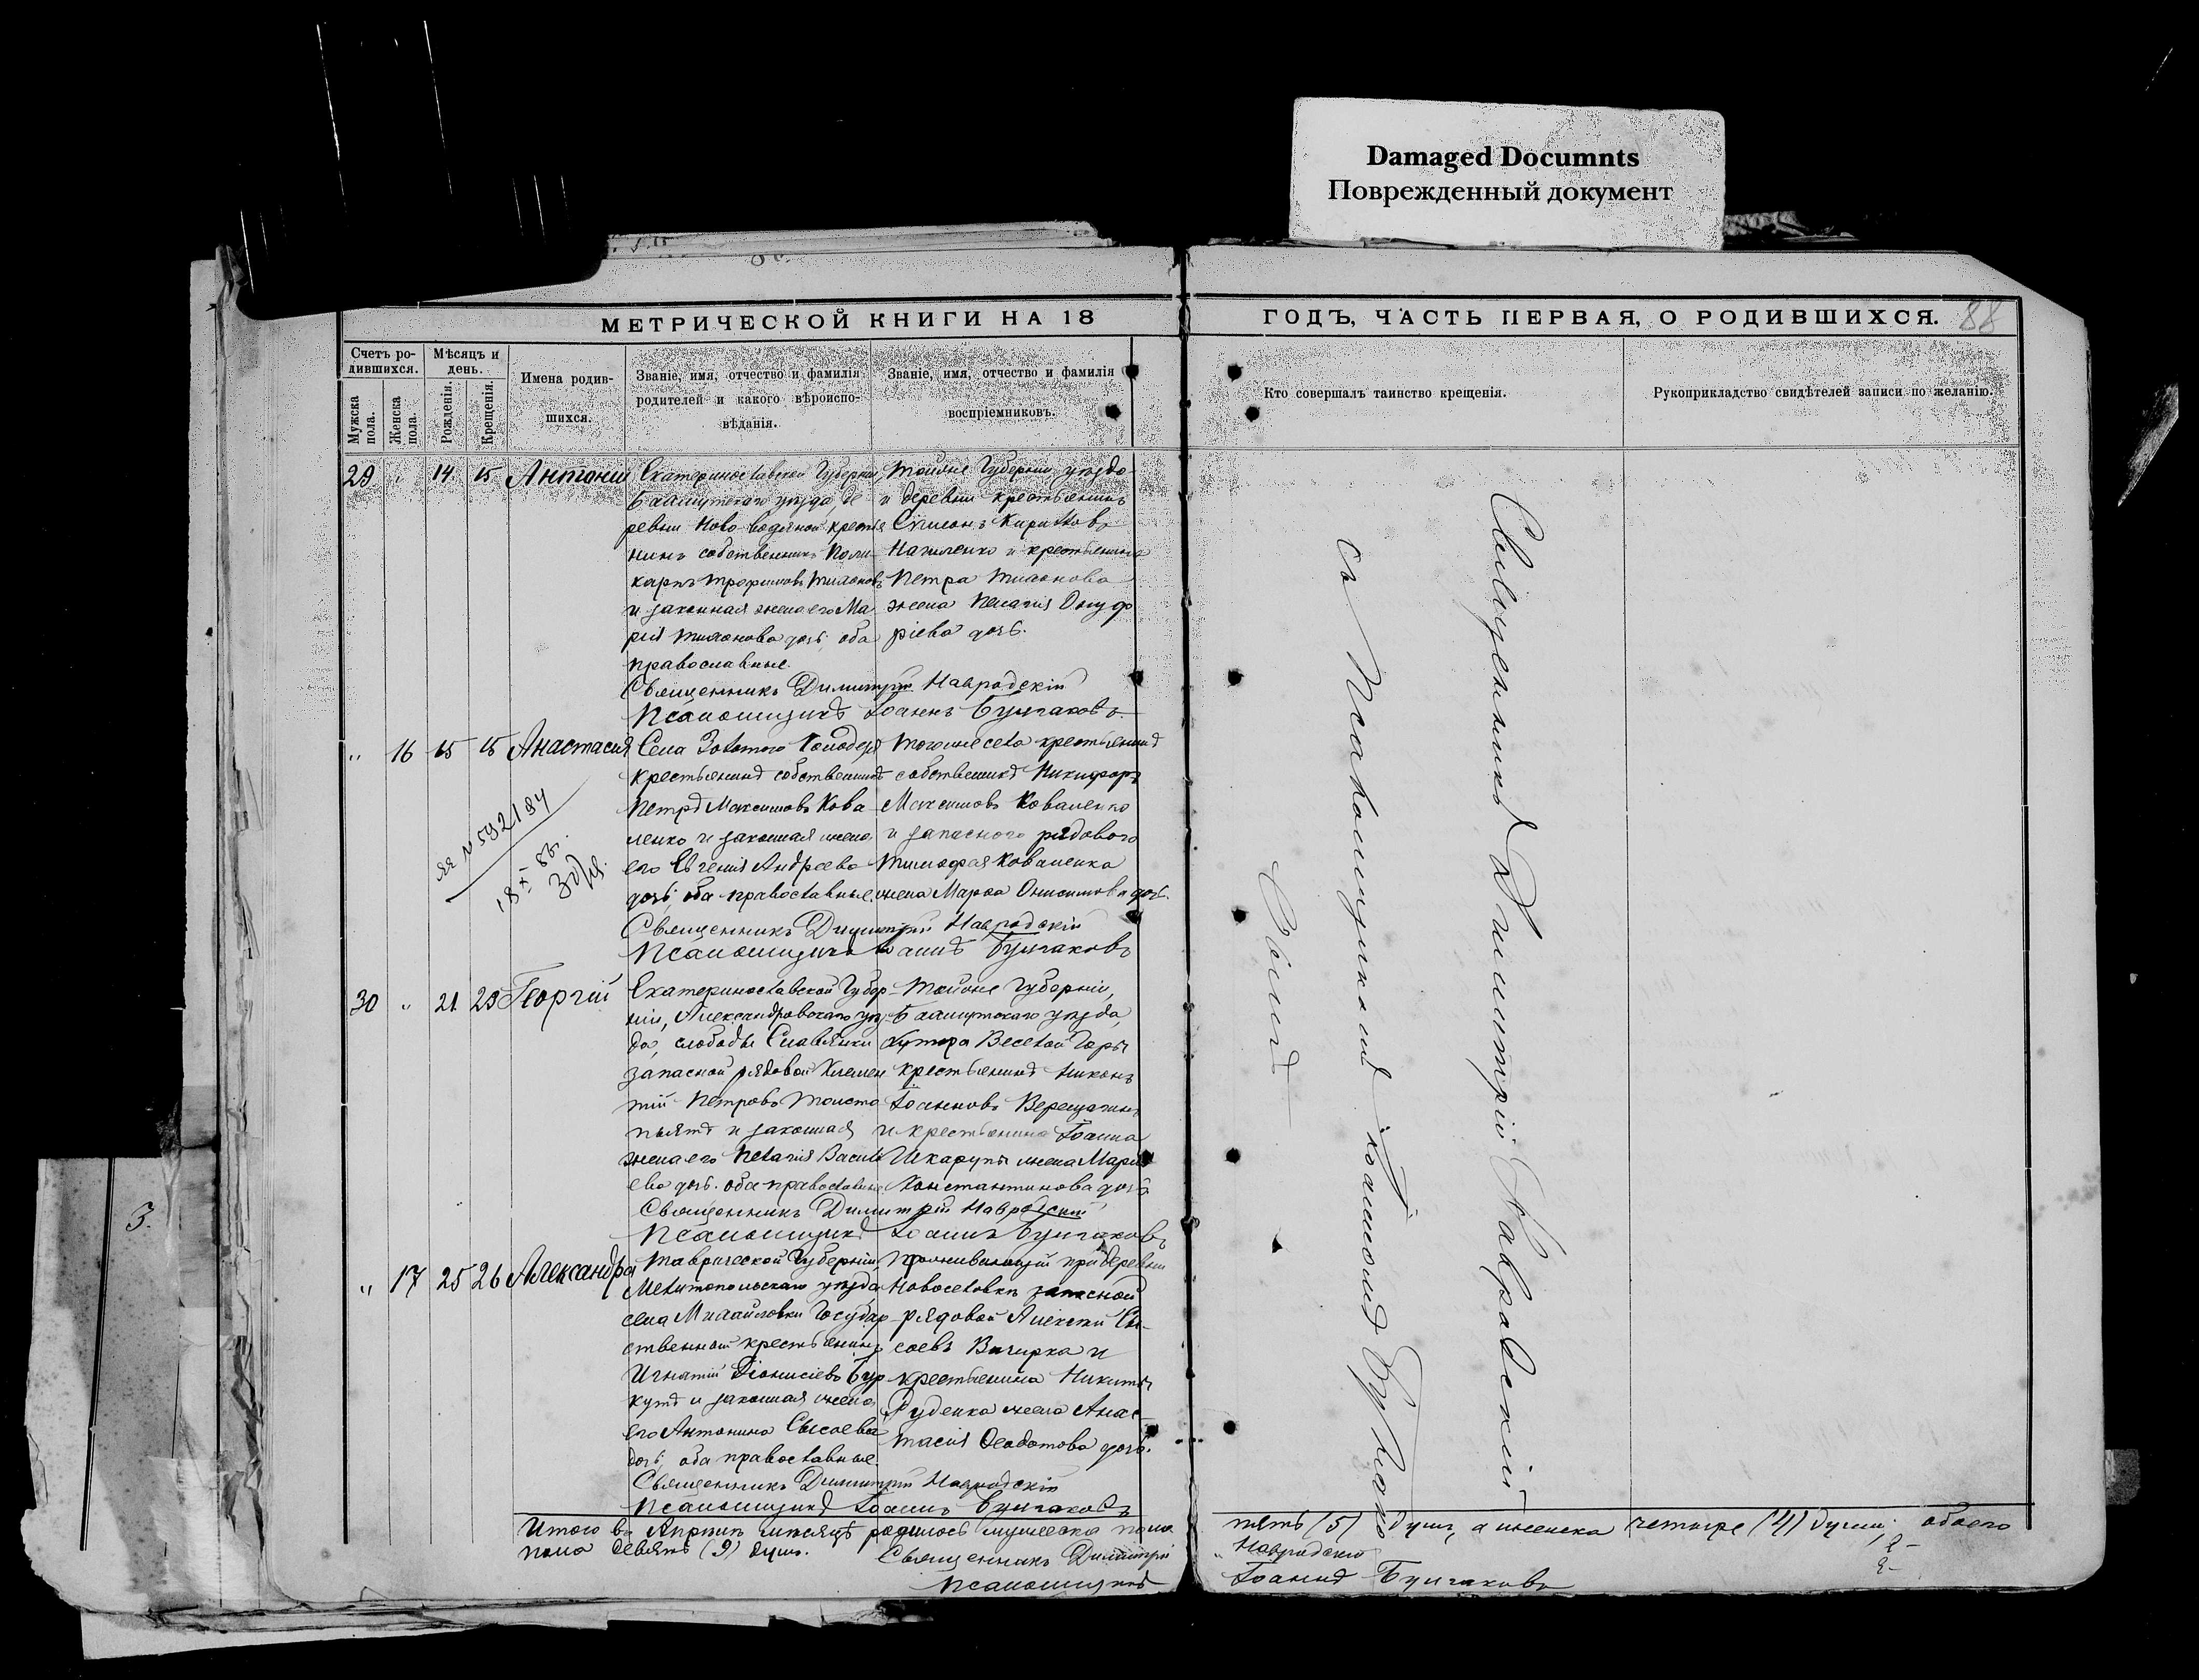 Damaged Documnts
Поврежденный документ
МЕТРИЧЕСКОЙ КНИГИ НА 18
ГОДЪ, ЧАСТЬ ПЕРВАЯ, О РОДИВШИХСЯ.
88
Счетъ ро-
дившихся.
Мѣсяцъ и
день.
Мужска
пола.
Женска
пола
Рожденія.
Крещенія.
Имена родив-
шихся.
Званіе, имя, отчество и фамилія
родителей и какого вѣроиспо-
вѣданія.
Званіе, имя, отчество и фамилія
воспріемниковъ.
Кто совершалъ таинство крещенія.
Рукоприкладство свидѣтелей записи по желанію.
29 " 14 15 Антоній
Екатеринославской Губерніи,
Бахмутскаго уѣзда, де
ревни Ново водяной крестья
нинъ собственникъ Поли
карпъ Трофимовъ Тихоновъ
и законная жена его Ма
рія Тихонова дочь, оба
православные.
Тойже Губерніи, уѣзда
и деревни крестьянинъ
Сѵмеонъ Кирилловъ
и крестьянина
Петра Тихонова
жена Пелагія Онуф
ріева дочь.
Священникъ Димитрій Навродскій
Псаломщикъ Іоаннъ Булгаковъ.
" 16 15 15 Анастасія
Села Золотого Колодезя
крестьянинъ собственникъ
Петръ Максимовъ Кова
ленко и законная жена
его Евгенія Андреева
дочь, оба православные.
Тогоже села крестьянинъ
собственникъ Никифоръ
Максимовъ Коваленко
и запаснаго рядового
Тимофея Коваленка
жена Марѳа Онисимова дочь.
Священникъ Димитрій Навродскій
Псаломщикъ Іоаннъ Булгаковъ
30 " 21 23 Георгій
Екатеринославской Губер
ніи, Александровскаго уѣз
да, слободы Славянки
запасной рядовой Климен
тій Петровъ Толсто
пятъ и законная
жена его Пелагія Василь
ева дочь. оба православные
Тойже Губерніи,
Бахмутскаго уѣзда,
хутора Веселой Горы
крестьянинъ Никонъ
Іоанновъ Верещагинъ
и крестьянина Іоанна
Шкарупы жена Марія
Константинова дочь
Священникъ Димитрій Навродскій
Псаломщикъ Іоаннъ Булгаковъ
" 17 25 26 Александра
Таврической Губерніи,
Мелитопольскаго уѣзда
села Михайловки Государ
ственный крестьянинъ
Игнатій Діонисіевъ Бур
кутъ и законная жена
его Антонина Сысоева
дочь, оба православные.
Проживающій при деревни
Новоселовкѣ запасной
рядовой Алексій Сы-
соевъ и
крестьянина Никиты
Руденка жена Анас
тасія Ѳеодотова дочь.
Священникъ Димитрій Навродскій
Псаломщикъ Іоаннъ Булгаковъ
Итого въ Апрѣлѣ мѣсяцѣ родилось мужеска пола
пять (5) душъ, а женска четыре (4) души; обоего
пола девять (9) душъ.
Священникъ Димитрій
Навродскій
Псаломщикъ
Іоаннъ Булгаковъ
Священникъ Димитрій Навродскій
съ Псаломщикомъ Іоанномъ Булгако
вымъ
3.